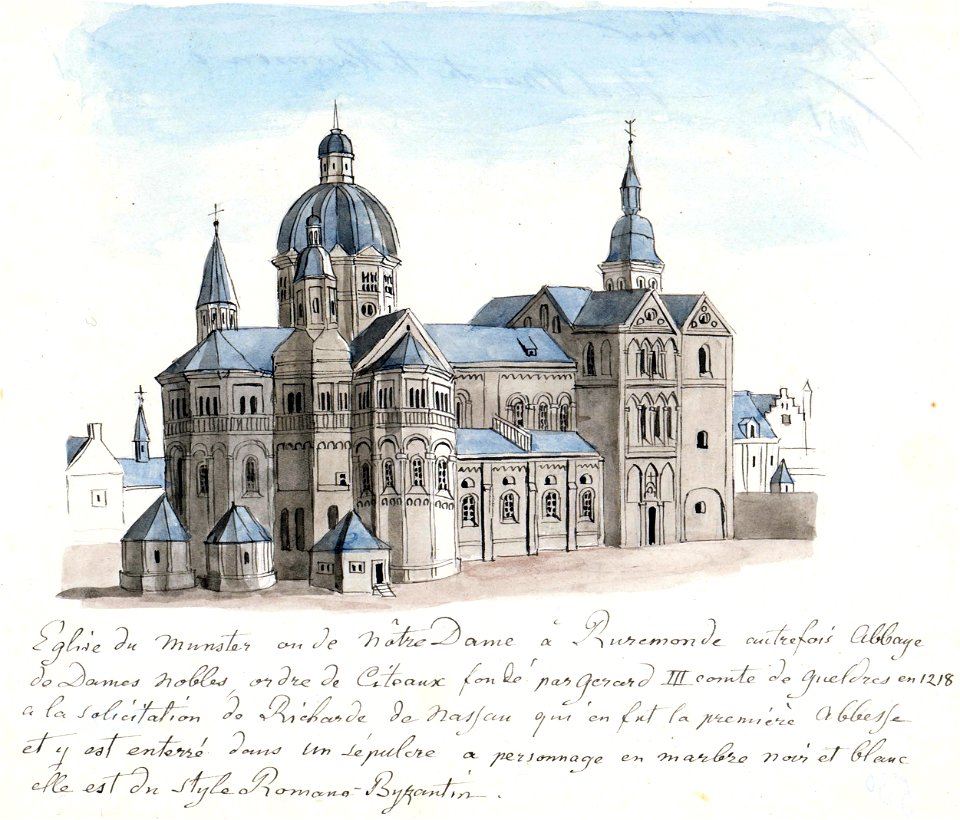 Eglise du Munster ou de Nôtre Dame à Ruremonde autrefois Abbaye
de Dames Nobles, ordre de Citeaux fondé par Gerard III comte de Gueldres en 1218
a la solicitation de Richarde de Nassau qui en fut la première Abbesse
et y est enterré dans un sépulcre a personnage en marbre noir et blanc
elle est du style Romano-Byzantin.